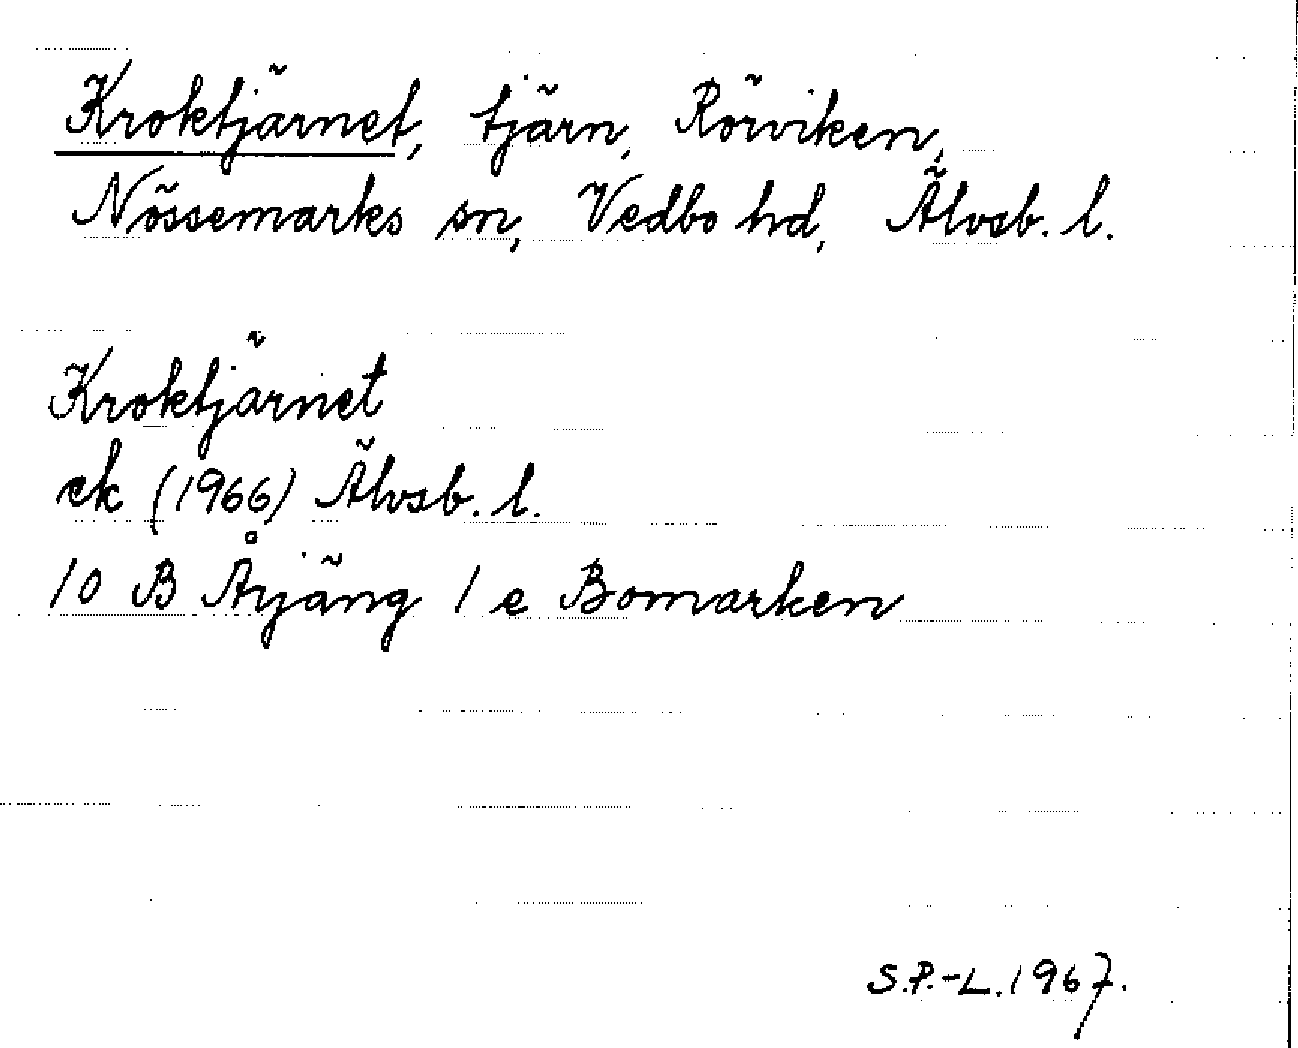 Kroktjärnet, tjärn, Rörviken,
Nössemarks sn, Vedbo hd, Älvsb. l.
Kroktjärnet
ek (1966) Älvsb. l.
10 B Årjäng 1 e Bomarken
S.P.-L. 1967.